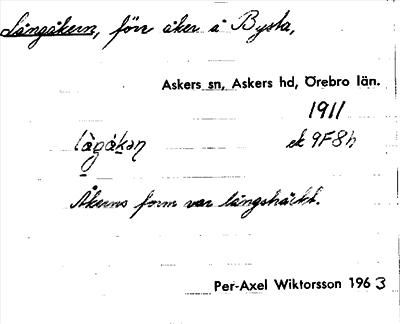 Långåkern, förr åker å Bysta,
Askers sn, Askers hd, Örebro län.
1911
lågåkəɳ ek 9F8h
Åkerns form var långsträckt.
Per-Axel Wiktorsson 1963